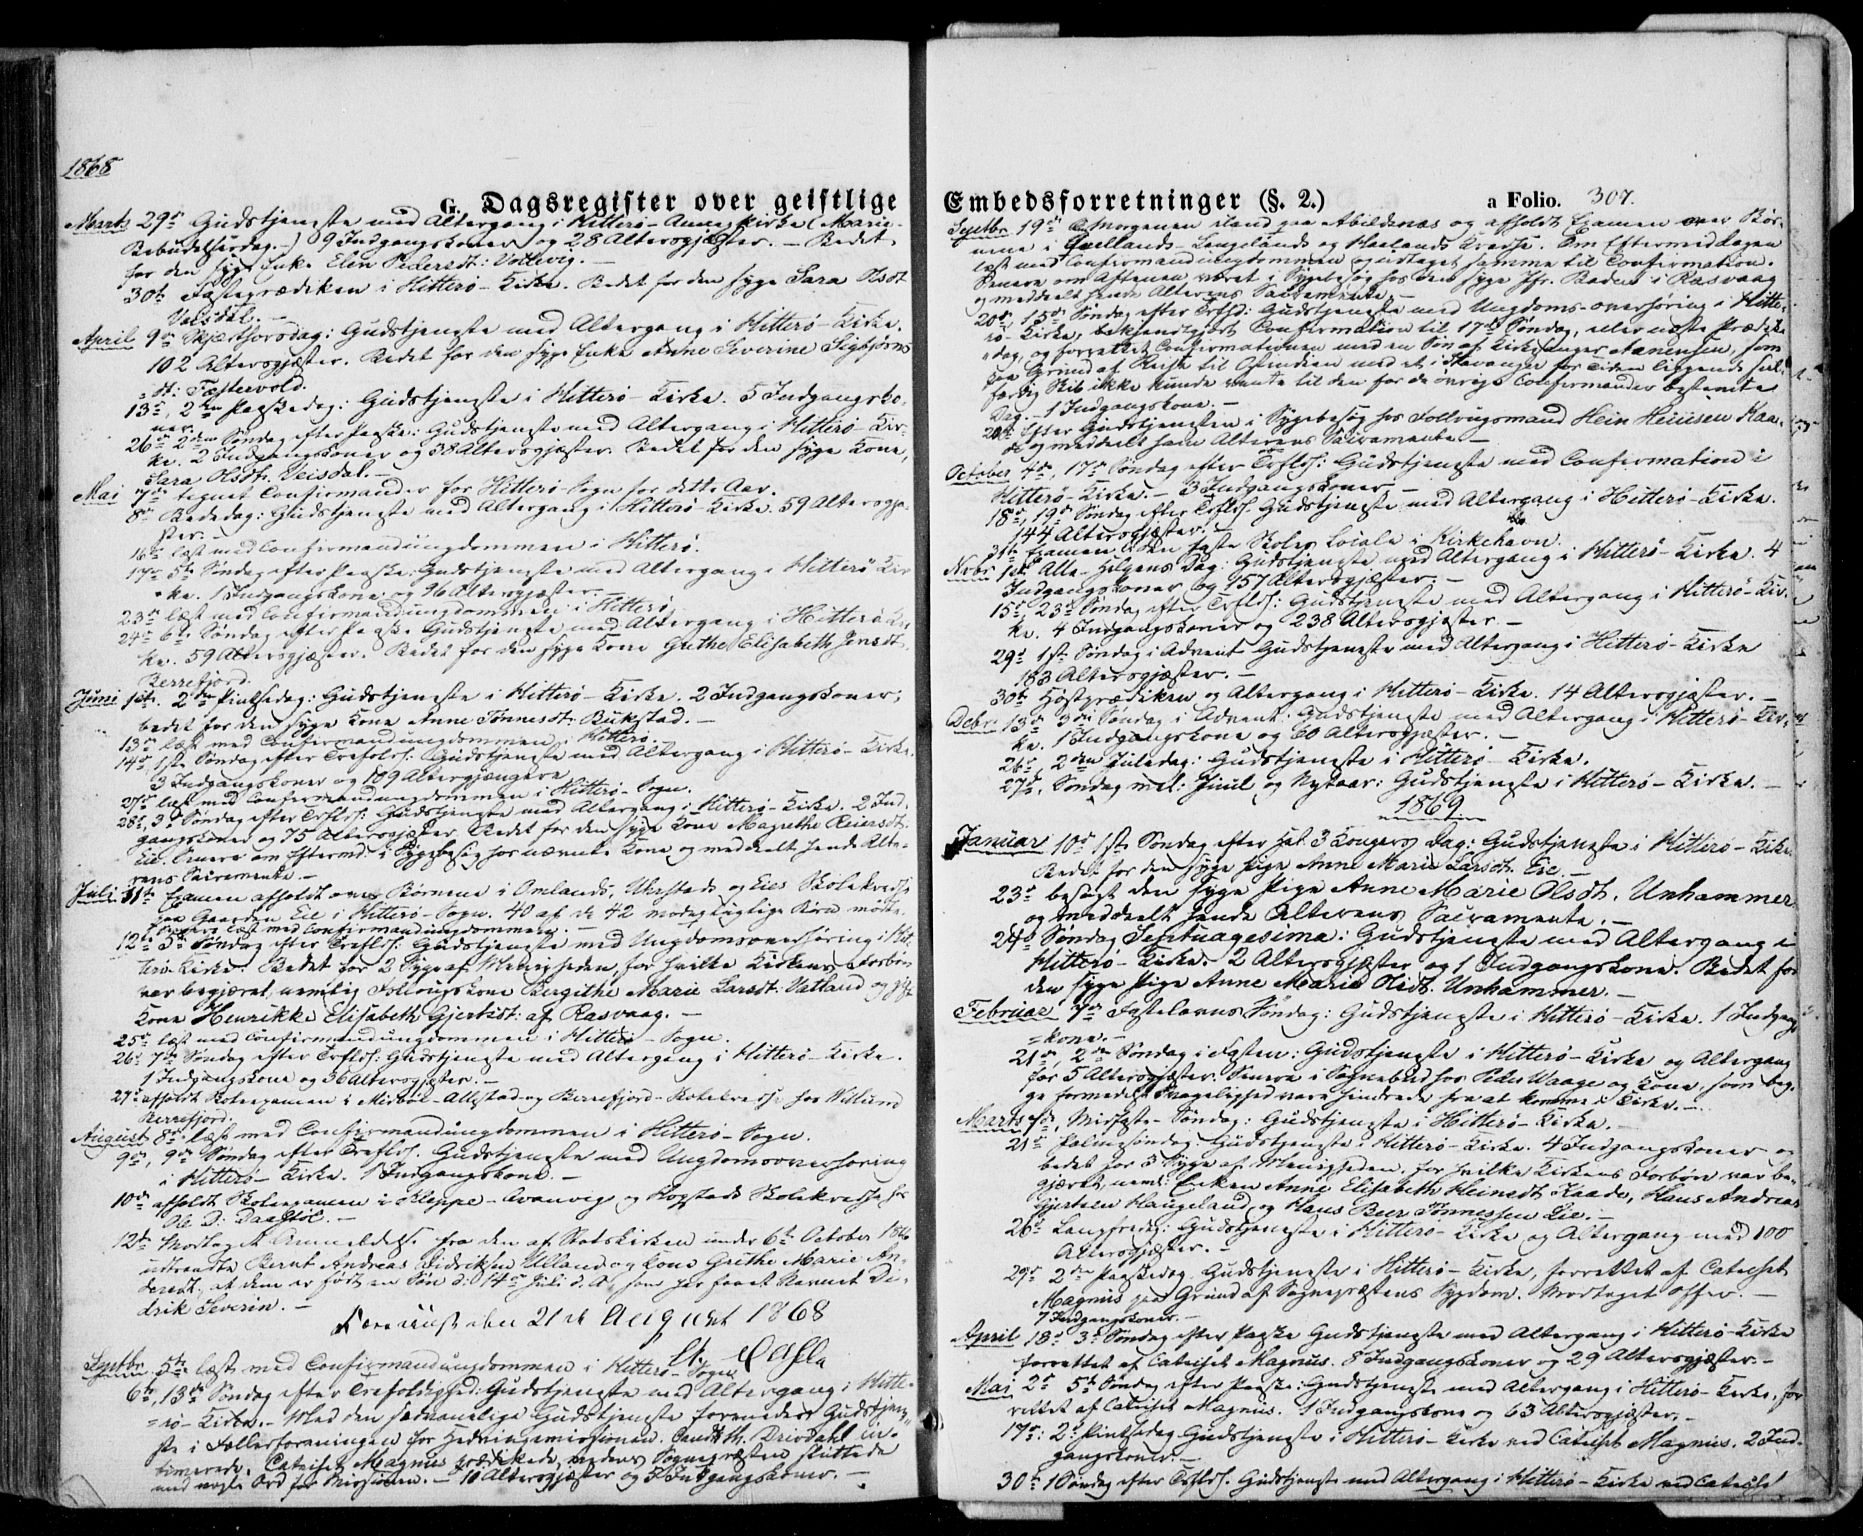 1868
G. Dagsregister over geistlige
Marts 29de Gudstjeneste med Altergang i Hitterø-Annexkirke (Mariæ-
Bebudelsesdag.-) 9 Indgangskoner og 28 Altersgjæster. - Bedet
for den syge Enke Elen Pedersdt: Vollevig. -
30te Fasteprædiken i Hitterø-Kirke. Bedet for den syge Sara Olsdt
Veisdal. -
April 9de Skjærthorsdag: Gudstjeneste med Altergang i Hitterø-Kirke.
102 Altersgjæster. Bedet for den syge Enke Anne Severine Sigbjørns-
dt: Festervold.
13de, 2den Paaskedag: Gudstjeneste i Hitterø-Kirke. 5 Indgangsko-
ner.
26de 2den Søndag efter Paaske: Gudstjeneste med Altergang i Hitterø-Kir-
ke. 2 Indgangskoner og 38 Altersgjæster. Bedet for den syge Kone,
Sara Olsdt. Veisdal. -
Mai 7de tegnet Confirmander for Hitterø-Sogn for dette Aar.
8de Bededag: Gudstjeneste med Altergang i Hitterø-Kirke. 59 Altersgjæ-
ster. -
16de læst med Confirmandungdommen i Hitterø.
17de 5te Søndag efter Paaske: Gudstjeneste med Altergang i Hitterø Kir-
ke. 1 Indgangskone og 96 Altersgjæster.
23de læst med Confirmandungdommen i Hitterø.
24de 6te Søndag efter Paaske Gudstjeneste med Altergang i Hitterø Kir-
ke. 59 Altersgjæster. Bedet for den syge Kone Grethe Elisabeth Jensdt.
Berrefjord.
Juni 1ste. 2den Pintsedag: Gudstjeneste i Hitterø-Kirke. 2 Indgangskoner;
bedet for den syge Kone Anne Tønnesdt. Birkestad. -
13de læst med Confirmandungdommen i Hitterø.
14de, 1ste Søndag efter Trefolds: Gudstjeneste med Altergang i Hitterø-Kirke.
3 Indgangskoner og 109 Altergjængere.
27de læst med Confirmandungdommen i Hitterø-Sogn.
28de, 3de Søndag efter Trflds: Gudstjeneste med Altergang i Hitterø-Kirke. 2 Ind-
gangskoner og 75 Altersgjæster. Bedet for den syge Kone Magrethe Reiersdt.
Eie. Senere om Efterm: i Sygebesøg hos nævnte Kone og meddeelt hende Alte-
rens Sacramente. -
Juli 11te Examen afholdt over Børnene i Omlands, Ulvstads og Eies Skolekredse
paa Gaarden Eie i Hitterø-Sogn. 40 af de 42 modtagelige Børn mødte.
Senere læst med Confirmandungdommen. -
12te 5te Søndag efter Trefldhs: Gudstjeneste med Ungdomsoverhøring i Hit-
terø-Kirke. Bedet for 2 Syge af Menigheden, for hvilke Kirkens Forbøn
var begjæret, nemlig Follougskone Bergithe Marie Larsdt. Vatland og gift
Kone Henrikke Elisabeth Gjertsdt: af Rasvaag. -
25de læst med Confirmandungdommen i Hitterø-Sogn.
26de 7de Søndag efter Trflds: Gudstjeneste med Altergang i Hitterø-Kirke.
1 Indgangskone og 36 Altersgjæster. -
27de afholdt Skoleexamen i Midbøe-Allestad og Berrefjord-Skolekredse hos Villum
Berrefjord.
August 8de læst med Confirmandungdommen i Hitterø-Sogn.
9de, 9de Søndag efter Trefolds: Gudstjeneste med Ungdomsoverhøring
i Hitterø-Kirke. 1 Indgangskone. -
10de afholdt Skoleexamen i Kleppe-Qvanvig og Rogstads Skolekredse hos
Ole D: Daastøl. -
12te Modtaget Anmeldelse fra den af Statskirken under 6te October 1866
udtraadte Bernt Andreas Didriksen Ulland og Kone Grethe Marie An-
dersdt, at dem er født en Søn d: 14de Juli d. A, som har faaet Navnet Di-
drik Severin. -
den 21de August 1868
Septbr 5te læst med Confirmandungdommen i Hitterø-Sogn.
6te, 13de Søndag efter Trefoldighed: Gudstjeneste med Altergang i Hitte-
rø-Kirke. - Med den sædvanelige Gudstjeneste forenedes Gudstjene-
ste i Fællesforeningen for Hedningemissionen. Cand. th. Drivdahl in-
timerede, Catechet Magnus prædikede, medens Sognepræsten sluttede
med nogle Ord for Missionen. - 10 Altersgjæster og 5 Indgangskoner. -
Embedsforretninger (§. 2.) a Folio. 307.
Septbr 19de Morgenen iland paa Abildsnæs og afholdt Examen over Bør-
nene i Qvellands-Langelands og Haalands Kredse. Om Eftermiddagen
læst med Confirmandungdommen og udtaget samme til Confirmation.
Senere om Aftenen været i Sygebesøg hos den syge Jfr. Baden i Rasvaag
og meddeelt hende Alterens Sacramente. -
20de, 15de Søndag efter Trfld: Gudstjeneste med Ungdoms-overhøring i Hitte-
rø-Kirke, bekjendtgjort Confirmation til 17de Søndag, eller næste Prædike-
dag, og forrettet Confirmationen med en Søn af Kirkesanger Aanensen, som
paa Grund af Reise til Ostindien med et i Stavanger for Tiden liggende seil-
færdig Skib ikke kunde vente til den for de øvrige Confirmander bestemte
Dag. - 1 Indgangskone. -
20de Efter Gudstjenesten i Sygebesøg hos Follougsmand Hein Heinsen Kaa-
de og meddeelt ham Alterens Sacramente. -
October 4de, 17de Søndag efter Trflds: Gudstjeneste med Confirmation i
Hitterø-Kirke. - 3 Indgangskoner. -
18de, 19de Søndag efter Trflds. Gudstjeneste med Altergang i Hitterø-Kirke.
144 Altersgjæster. -
31te Examen i den faste Skoles Locale i Kirkehavn.
Novbr 1ste Alle-Helgens Dag: Gudstjeneste med Altergang i Hitterø-Kirke. 4
Indgangskoner og 157 Altersgjæster. -
15de, 23de Søndag efter Trflds: Gudstjeneste med Altergang i Hitterø-Kir-
ke. 4 Indgangskoner og 238 Altersgjæster. -
29de 1ste Søndag i Advent Gudstjeneste med Altergang i Hitterø-Kirke
183 Altersgjæster. -
30te Høstprædiken og Altergang i Hitterø-Kirke. 14 Altersgjæster. -
Debr 13de 3die Søndag i Advent: Gudstjeneste med Altergang i Hitterø-Kir-
ke. 1 Indgangskone og 60 Altersgjæster. -
26de, 2den Juledag: Gudstjeneste i Hitterø-Kirke.
27de, Søndag mel: Juul og Nytaar: Gudstjeneste i Hitterø-Kirke. -
1869
Januar 10de 1ste Søndag efter Hel. 3 Kongers Dag: Gudstjeneste i Hitterø-Kirke.
Bedet for den syge Pige Anne Marie Larsdt. Eie. -
23de besøgt den syge Pige Anne Marie Olsdt. Unhammer
og meddeelt hende Alterens Sacramente. -
24de Søndag Septuagesima: Gudstjeneste med Altergang i
Hitterø-Kirke. 2 Altersgjæster og 1 Indgangskone. Bedet for
den syge Pige Anne Marie Olsdt. Unhammer. -
Februar 7de Fastelavns Søndag: Gudstjeneste i Hitterø-Kirke. 1 Indgangs-
kone. -
21de, 2den Søndag i Fasten: Gudstjeneste i Hitterø-Kirke og Altergang
for 5 Altersgjæster. Senere i Sognebud hos Peder Waage og Kone, som beg-
ge formedelst Svagelighed vare hindrede fra at komme i Kirke. -
Marts 7de, Midfaste-Søndag: Gudstjeneste i Hitterø-Kirke.
21de Palmesøndag: Gudstjeneste i Hitterø-Kirke. 4 Indgangskoner og
bedet for 3 Syge af Menigheden, for hvilke Kirkens Forbøn var be-
gjæret, neml: Enken Anne Elisabeth Heinsdt Kaade, Hans Andreas
Gjertsen Haugeland og Hans Beer Tønnessen Eie. -
26de Langfredag: Gudstjeneste i Hitterø-Kirke og Altergang med 100
Altersgjæster. -
29de 2den Paaskedag. Gudstjeneste i Hitterø-Kirke, forrettet af Catechet
Magnus paa Grund af Sognepræstens Sygdom. Modtaget Offer. -
7 Indgangskoner. -
April 18de 3die Søndag efter Paaske Gudstjeneste med Altergang i Hitterø-Kirke
forrettet af Catechet Magnus. 8 Indgangskoner og 29 Altersgjæster. -
Mai 2den 5te Søndag efter Paaske: Gudstjeneste med Altergang i Hitterø-Kirke, for-
rettet af Catechet Magnus. 1 Indgangskone og 63 Altersgjæster. -
17de: 2den Pintsedag Gudstjeneste i Hitterø-Kirke ved Catechet Magnus. 2 Ind-
gangskoner. -
30te 1 Søndag efter Trflds. Gudstjeneste med Altergang i Hitterø-Kirke ved Catechet